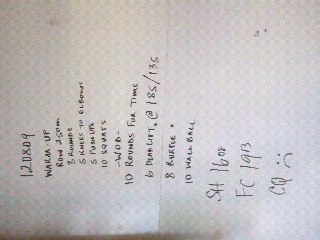 120809
WARM-UP
ROW 250m
3 ROUNDS
5 KNEES TO ELBOWS
5 PUSH UPS
10 SQUATS
-WOD-
10 ROUNDS FOR TIME
6 DEADLIFT @ 185/135
8 BURPEE
10 WALL BALL
SH 1608
FC 1913
CQ :)